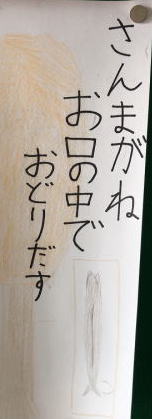 さんまがね
お口の中で
おどりだす